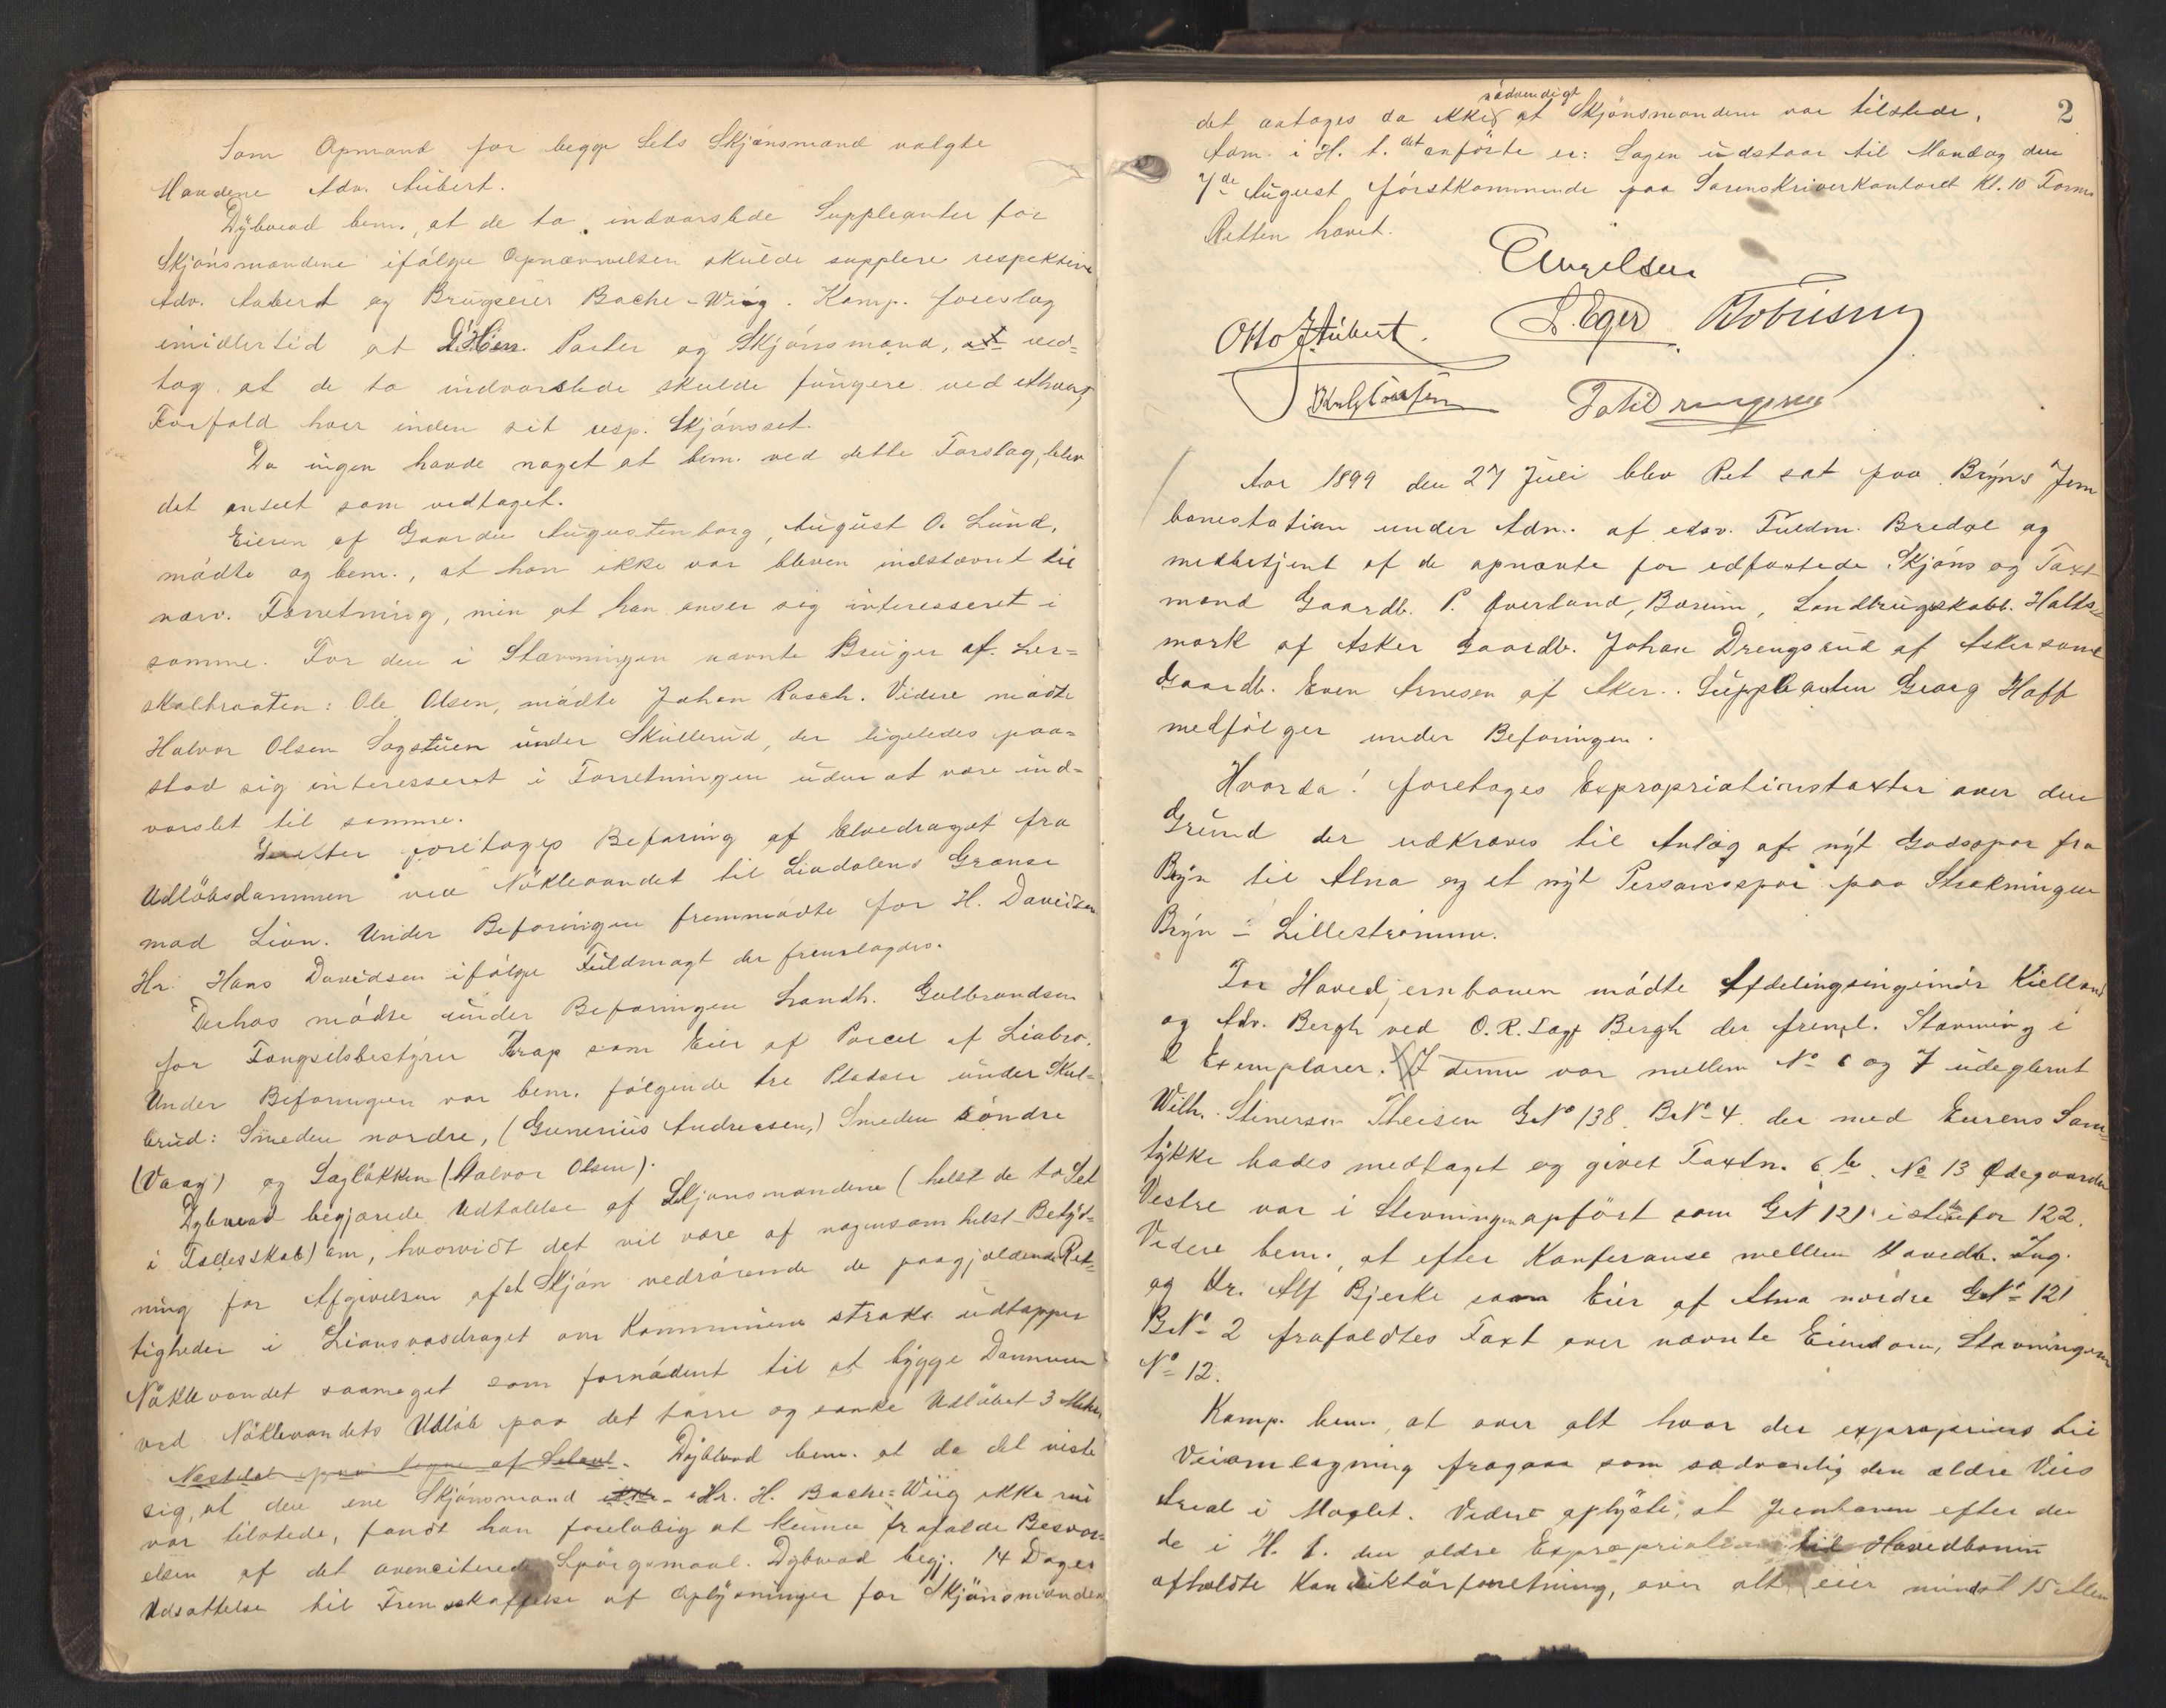 Som Opmand for begge Sets Skjønsmænd valgte
Mændene Adv. Aubert.
Dybwad bem., at de to indvarslede Suppleanter for
Skjønsmændene ifølge Opnævnelsen skulde supplere respektive
Adv. Aubert og Brugseier Bache-Wiig. Komp. foreslog
imidlertid at Parter og Skjønsmænd, ved-
tog at de to indvarslede skulde fungere ved ethvert
Forfald hver inden sit resp. Skjønsset.
Da ingen havde noget at bem. ved dette Forslag, blev
det anseet som vedtaget.
Eieren af Gaarden Augustenborg, August O. Lund,
mødte og bem., at han ikke var bleven indstævnt til
nærv. Forretning, men at han anser sig interesseret i
samme. For den i Stævningen nævnte Bruger af Ler-
skalbraaten: Ole Olsen, mødte Johan Pasch. Videre mødte
Halvor Olsen Sagstuen under Skullerud, der ligeledes paa-
stod sig interesseret i Forretningen uden at være ind-
varslet til samme.
Derefter foretoges Befaring af Elvedraget fra
Udløbsdammen ved Nøklevandet til Liadalens Grænse
mod Lian. Under Befaringen fremmødte for H. Davidsen
Hr. Hans Davidsen ifølge Fuldmagt der fremlagdes.
Derhos mødte under Befaringen Landh. Gulbrandsen
for Fængselsbestyrer Krap som Eier af Parcel af Liabro.
Under Befaringen var bem. følgende tre Pladser under Skul-
lerud: Smeden nordre, (Gunerius Andreasen,) Smeden søndre
(Vaag) og Sagløkken (Halvor Olsen).
Dybwad begjærede Udtalelse af Skjønsmændene (helst de to Set
i Fællesskab) om, hvorvidt det vil være af nogensomhelst Betyd-
ning for Afgivelsen af et Skjøn vedrørende de paagjældende Ret-
tigheder i Liansvasdraget om Kommunen straks udtapper
Nøklevandet saameget som fornødent til at bygge Dammen
ved Nøklevandets Udløb paa det tørre og sænke Udløbet 3 Meter
af Dybwad bem. at da det viste
sig, at den ene Skjønsmand Hr. H. Bache-Wiig ikke nu
var tilstede, fandt han foreløbig at kunne frafalde Besvar-
elsen af det ovenciterede Spørgsmaal. Dybwad begj. 14 Dages
Udsættelse til Fremskaffelse af Oplysninger for Skjønsmændene
2
nødvendigt
det antoges da ikke at Skjønsmændene var tilstede.
Adm. i H. t. det anførte er: Sagen udstaar til Mandag den
7de August førstkommende paa Sorenskriverkontoret Kl. 10 Form.
Retten hævet.
Engelsen
Otto J Aubert. L. Eger

Aar 1899 den 27 Juli blev Ret sat paa Bryns Jern
banestation under Adm. af edsv. Fuldm. Bredal og
medbetjent af de opnævnte før edfæstede Skjøns og Taxt
mænd Gaardb. P. Øverland, Bærum, Landbrugskabb. Halts-
mark af Asker Gaardb. Johan Drengsrud af Asker samt
Gaardb. Even Arnesen af Aker. Suppleanten Georg Hoff
medfølger under Befaringen.
Hvorda! foretoges Expropriationstaxter over den
Grund der udkræves til Anlæg af nyt Godsspor fra
Bryn til Alna og et nyt Personspor paa Strækningen
Bryn - Lillestrømmen.
For Hovedjernbanen mødte Afdelingsingeniør Kielland
og Adv. Bergh ved O.R.Sagf Bergh der freml. Stævning i
2 Exemplarer. I denne var mellem No 6 og 7 udeglemt
Wilh. Stinersen Theisen GNo 138. BNo 4 der med Eierens Sam-
tykke bades medtaget og givet Taxtn. 6 b. No 13 Ødegaarden
Vestre var i Stevningen opført som GN 121 istedetfor 122.
Videre bem., at efter Konferanse mellem Hovedb. Ing.
og Hr. Alf Bjerke som Eier af Alna nordre GNo 121
BNo 2 frafaldtes Taxt over nævnte Eiendom, Stævningens
No 12.
Komp. bem., at over alt hvor der exproprieres til
Veiomlægning fragaar som sædvanlig den ældre Veis
Areal i Maalet. Videre oplyste, at Jernbanen efter den
de i H. t. den ældre Expropriation til Hovedbanen
afholdte Konduktørforretning, over alt eier mindst 15 Alen